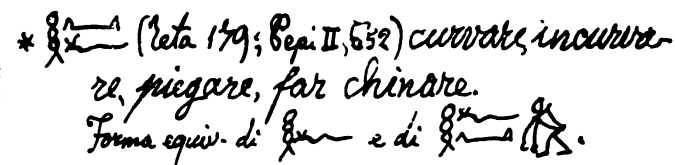 * (Teta 179; Pepi II, 652) curvare, incurva-
re, piegare, far chinare.
Forma equiv. di e di .